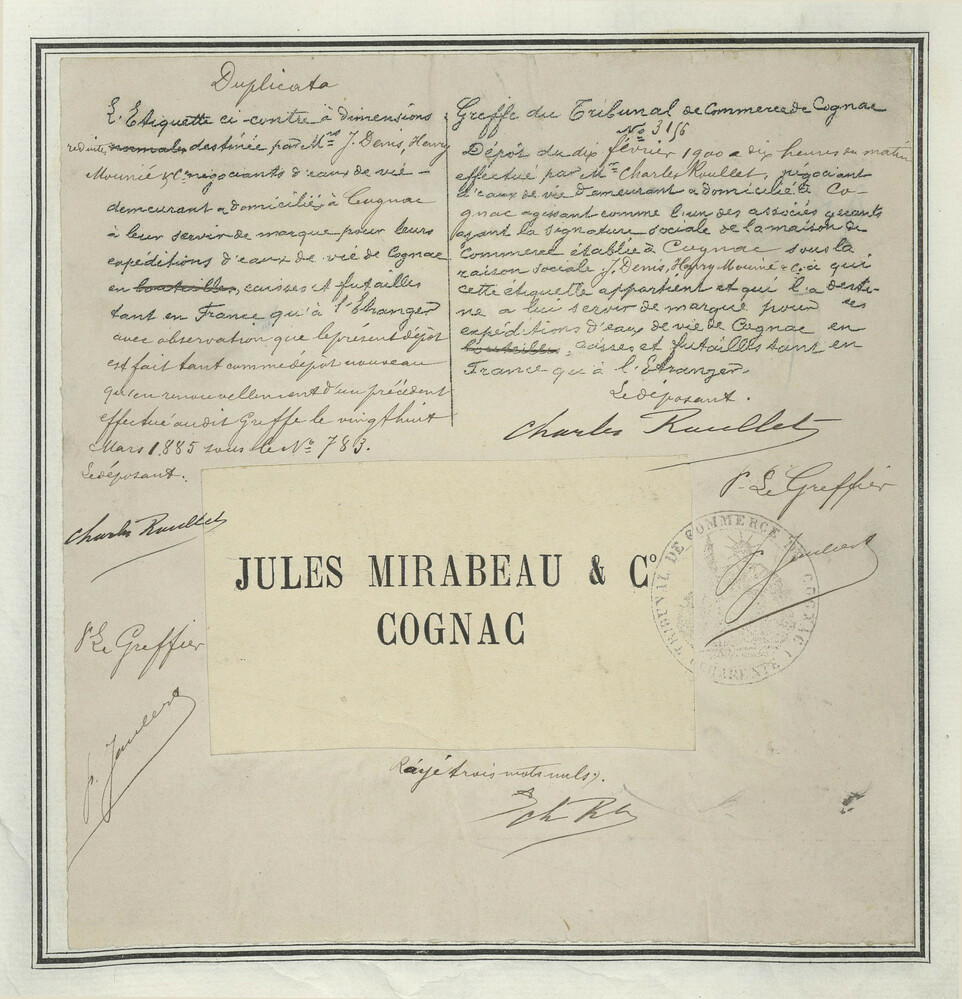 Duplicata
L'Etiquette ci-contre à dimensions
réduites normales destinée par Mrs J. Denis, Henry
Mounié & Co négociants d'eaux de vie -
demeurant & domiciliés à Cognac
à leur servir de marque pour leurs
expéditions d'eaux de vie de Cognac
en bouteilles, caisses et futailles
tant en France qu'à l'Etranger
avec observation que le présent dépôt
est fait tant comme dépôt nouveau
qu'en renouvellement d'un précédent
effectué au dit Greffe le vingt huit
Mars 1885 sous le No 783.
Le déposant.
Charles Roullet
Pr Le Greffier
Greffe du Tribunal de Commerce de Cognac
No 3116
Dépôt du dix février 1900 à dix heures du matin
effectué par Mr Charles Roullet, négociant
d'eaux de vie demeurant & domicilié à Co-
gnac agissant comme l'un des associés gérants
ayant la signature sociale de la maison de
Commerce établie à Cognac sous la
raison sociale J. Denis, Henry Mounié & Co à qui
cette étiquette appartient et qui l'a desti-
née à lui servir de marque pour ses
expéditions d'eaux de vie de Cognac en
bouteilles, caisses et futailles tant en
France qu'à l'Etranger.
Le déposant.
Charles Roullet
Pr Le Greffier
JULES MIRABEAU & Co
COGNAC
TRIBUNAL DE COMMERCE COGNAC (CHARENTE)
Rayé trois mots nuls.
Ch R